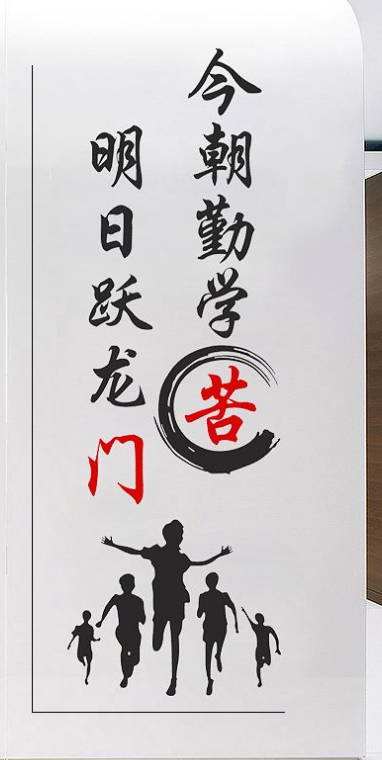 今朝勤学苦
明日跃龙门